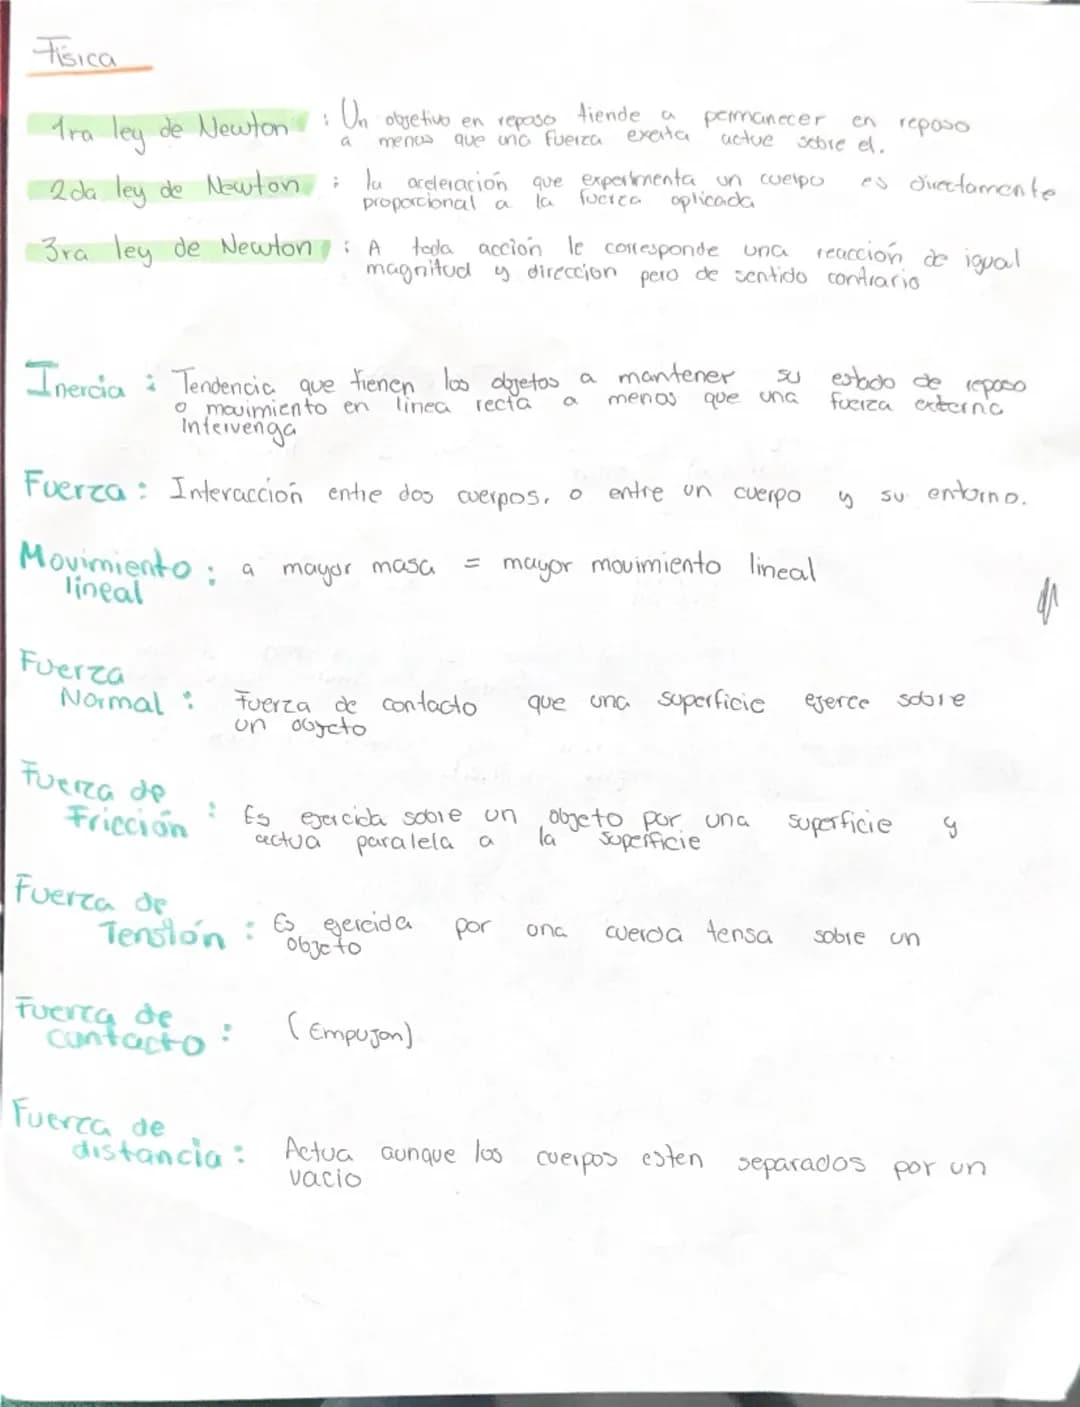 Física
1ra ley de Newton : Un objetivo en reposo tiende a permanecer en reposo
a menos que una fuerza exerta actue sobre el.
2da ley de Newton : la aceleración que experimenta un cuerpo es directamente
proporcional a la fuerza aplicada
3ra ley de Newton : A toda acción le corresponde una reacción de igual
magnitud y direccion pero de sentido contrario
Inercia : Tendencia que tienen los objetos a mantener su estado de reposo
o movimiento en linea recta a menos que una fuerza externa
Intervenga
Fuerza : Interacción entre dos cuerpos, o entre un cuerpo y su entorno.
Movimiento : a mayor masa = mayor movimiento lineal
lineal
Fuerza
Normal : Fuerza de contacto que una superficie ejerce sobre
un objeto
Fuerza de
Fricción : Es ejercida sobre un objeto por una superficie y
actua paralela a la superficie
Fuerza de
Tensión : Es ejercida por una cuerda tensa sobre un
objeto
Fuerza de
contacto : (Empujon)
Fuerza de
distancia : Actua aunque los cuerpos esten separados por un
vacio